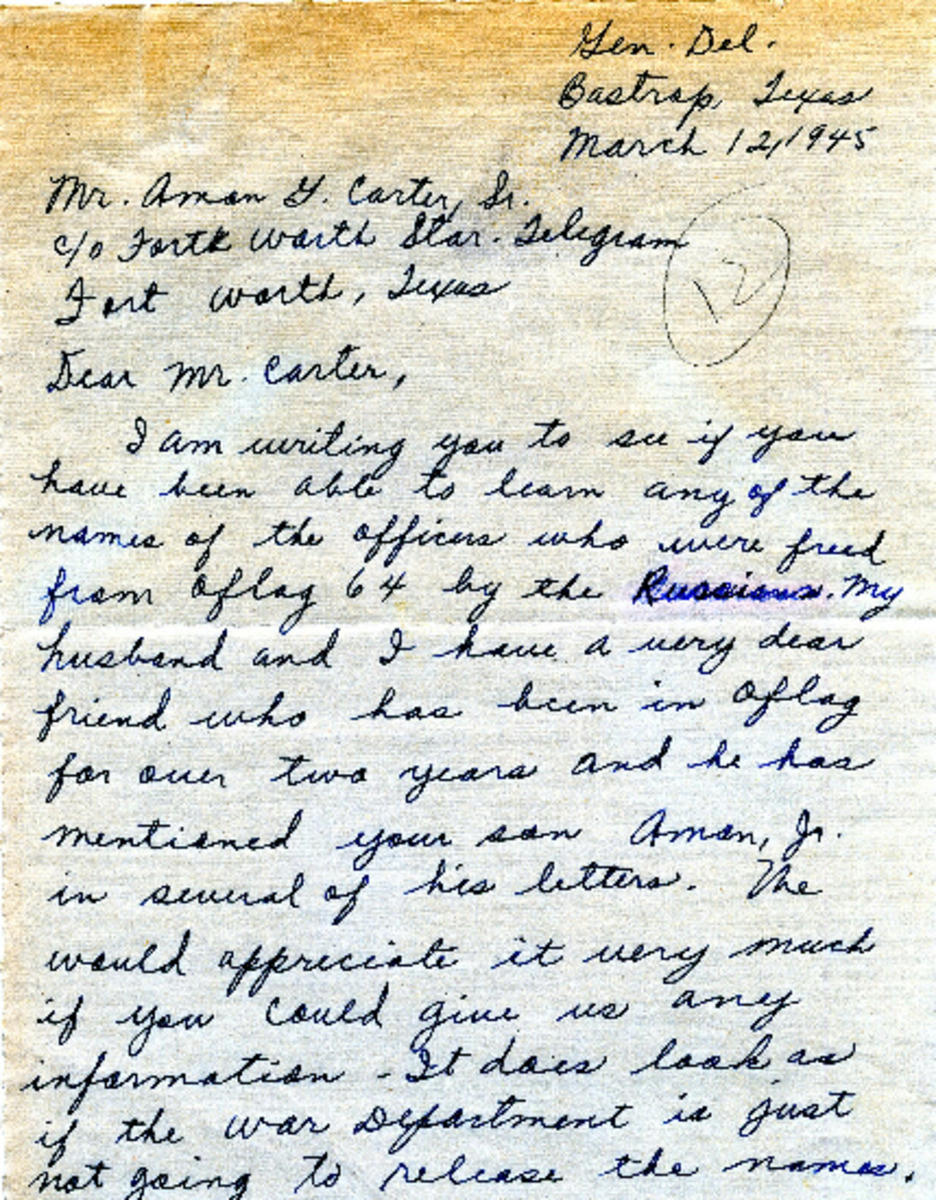 Gen. Del.
Bastrop, Texas
March 12, 1945
Mr. Amon G. Carter, Sr.
c/o Forth Worth Star-Telegram
Fort Worth, Texas
12
Dear Mr. Carter,
I am writing you to see if you
have been able to learn any of the
names of the officers who were freed
from Oflag 64 by the Russians. My
husband and I have a very dear
friend who has been in Oflag
for over two years and he has
mentioned your son Amon, Jr.
in several of his letters. We
would appreciate it very much
if you could give us any
information - It does look as
if the War Department is just
not going to release the names.